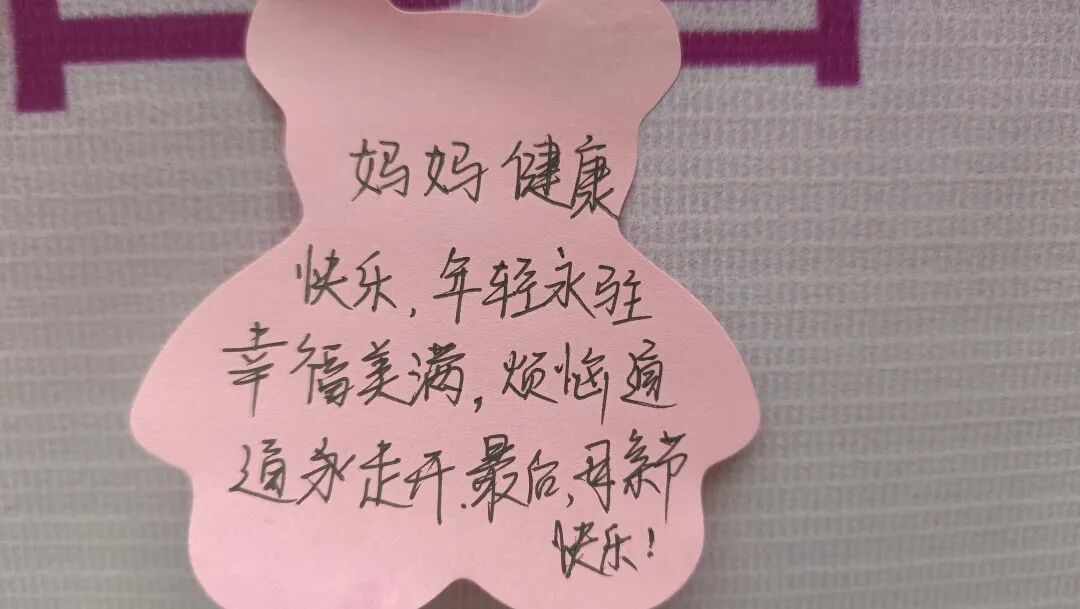 妈妈健康
快乐,年轻永驻
幸福美满,烦恼通
通永走开.最后,母亲节
快乐!